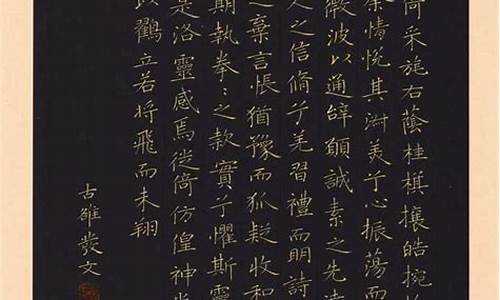 倚采旄右蔭桂棋攘皓捥
余情悅其淑美兮心振蕩而
微波以通辭願誠素之先達
人之信脩兮羌習禮而明詩
之棄言悵猶豫而狐疑收和
期執拳〻之款實兮懼斯靈
是洛靈感焉徙倚仿偟神光
以鸛立若將飛而未翔
古雒發文